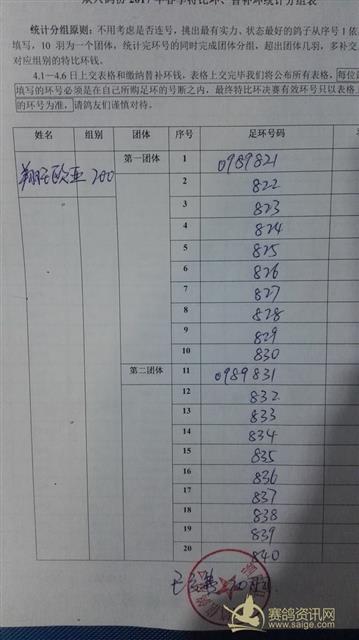 2017年春季特比环、替补环统计分组表
统计分组原则：不用考虑是否连号，挑出最有实力、状态最好的鸽子从序号1依
填写，10 羽为一个团体，统计完环号的同时完成团体分组，超出团体几羽，多补交
对应组别的特比环钱。
4.1—4.6 日上交表格和缴纳替补环钱。表格上交完毕我们将公布所有表格，每位
填写的环号必须是在自己所购足环的号断之内，最终特比环决赛有效环号只以表格
的环号为准，请鸽友们谨慎对待。
姓名 组别 团体 序号 足环号码
翔 欧亚 200 第一团体 1 0989821
2 822
3 823
4 824
5 825
6 826
7 827
8 828
9 829
10 830
第二团体 11 0989831
12 832
13 833
14 834
15 835
16 836
17 837
18 838
19 839
20 840
赛鸽资讯网
www.saige.com